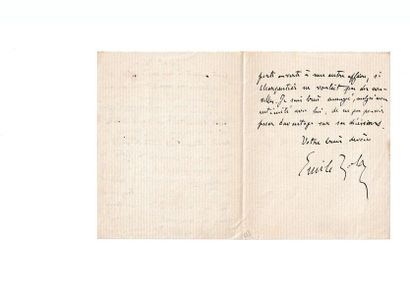 porte ouverte à une autre affaire, si
Charpentier ne voulait pas des nou-
velles. Je suis bien ennuyé, malgré mon
intimité avec lui, de ne pas pouvoir
peser davantage sur sa décision.
Votre bien dévoué
Emile Zola